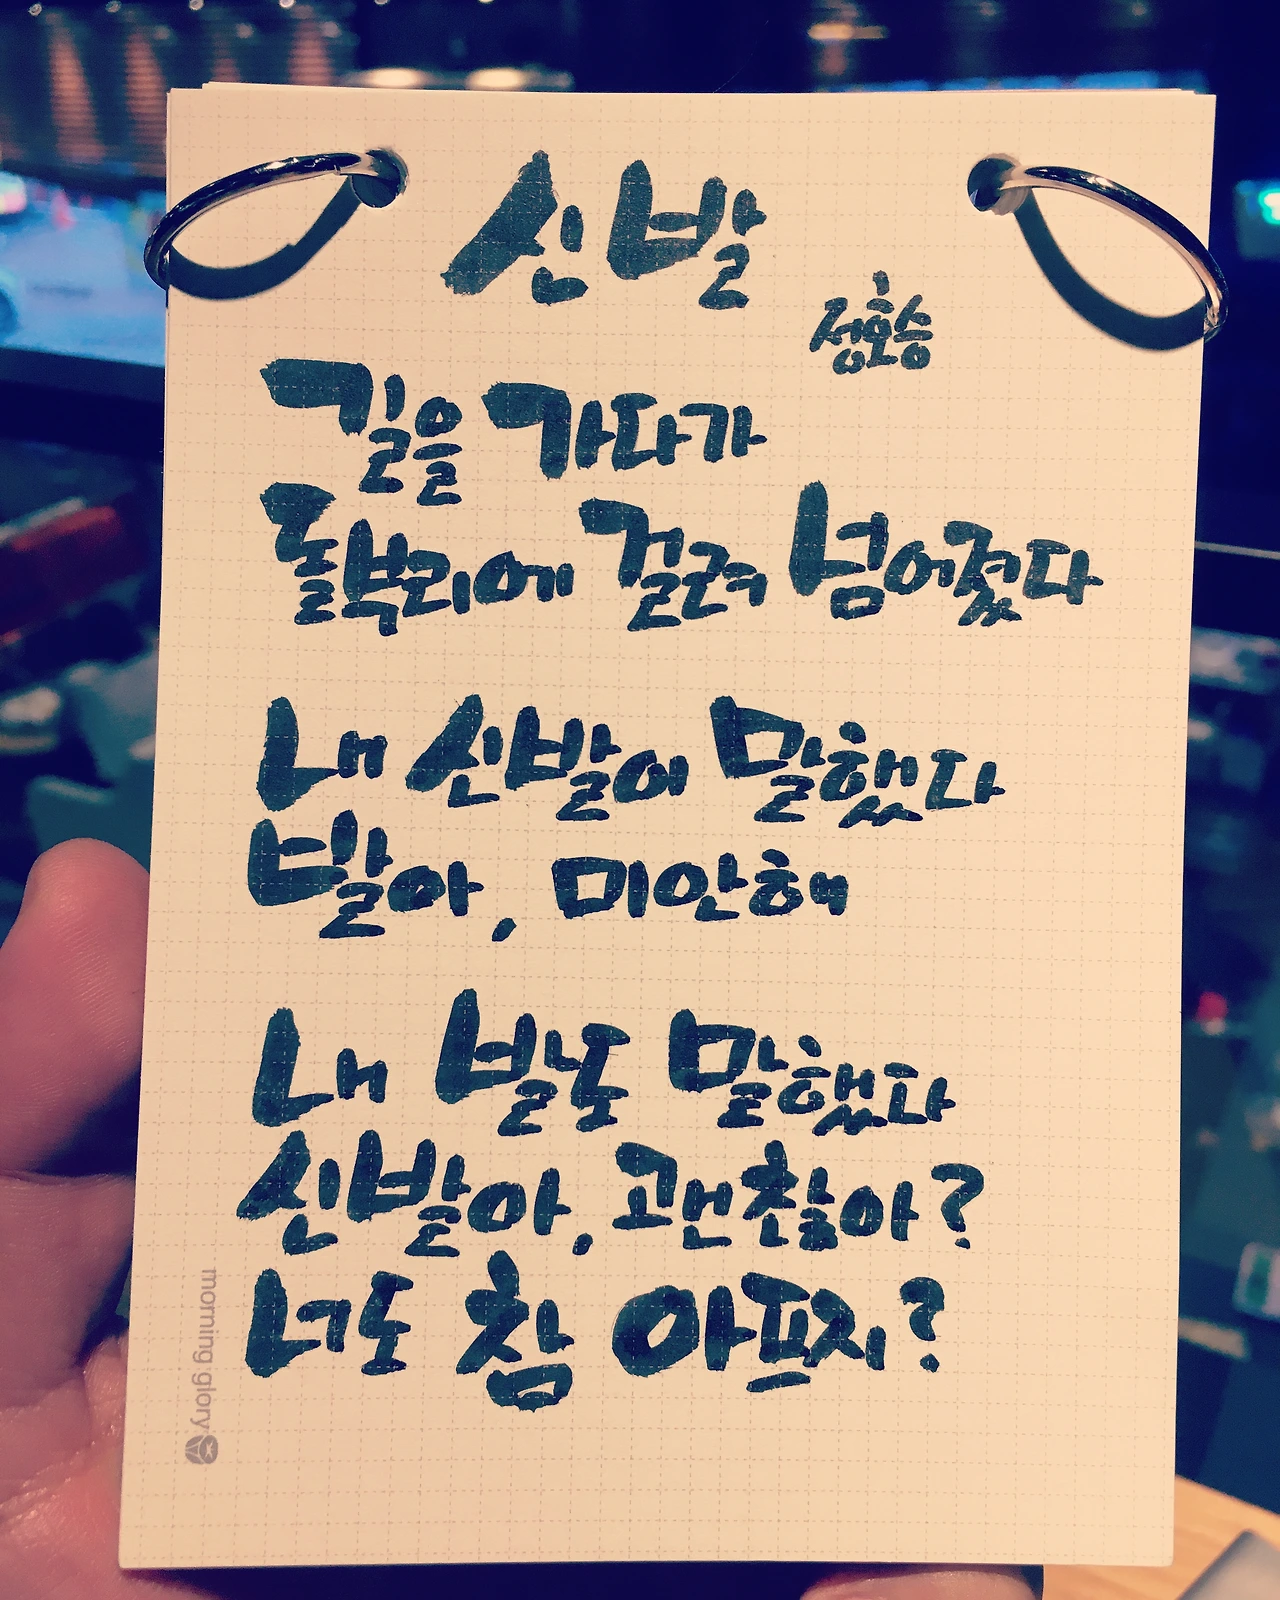 신발
정호승
길을 가다가
돌부리에 걸려 넘어졌다
내 신발이 말했다
발아, 미안해
내 발도 말했다
신발아, 괜찮아?
너도 참 아프지?
morning glory